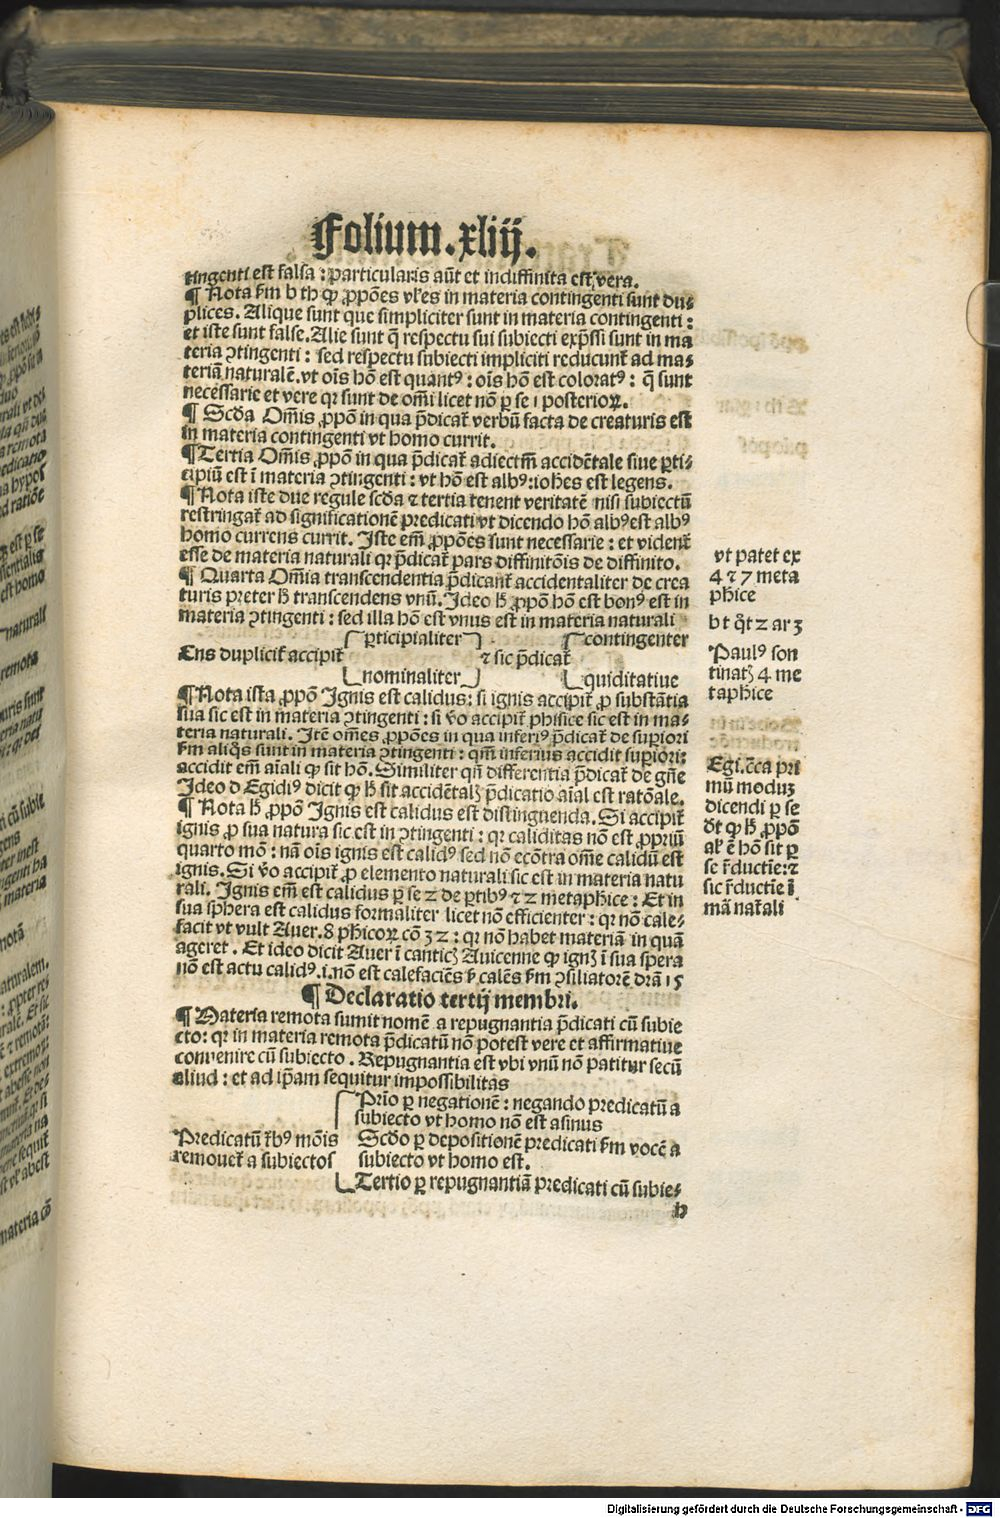 Folium .xliij.
tingenti est falsa : particularis aūt et indiffinita est vera.
¶ Nota ẜm b th ꝙ ꝓpōes vl̄es in materia contingenti sunt du⸗
plices. Alique sunt que simpliciter sunt in materia contingenti :
et iste sunt false. Alie sunt q̄ respectu sui subiecti exp̄ssi sunt in ma
teria ↄtingenti : sed respectu subiecti impliciti reducunt᷑ ad ma⸗
teriā naturalē. vt oīs hō est quantꝰ : oīs hō est coloratꝰ : q̄ sunt
necessarie et vere qr sunt de omni licet nō ꝑ se i posterioꝝ.
¶ Scd̄a Om̄is ꝓpō in qua p̄dicat᷑ verbū facta de creaturis est
in materia contingenti vt homo currit.
¶ Tertia Om̄is ꝓpō in qua p̄dicat᷑ adiectm̄ accidētale siue ꝑti⸗
cipiū est ī materia ↄtingenti : vt hō est albꝰ : ioh̄es est legens.
¶ Nota iste due regule scd̄a ⁊ tertia tenent veritatē nisi subiectū
restringat᷑ ad significationē predicati vt dicendo hō albꝰ est albꝰ
homo currens currit. Iste em̄ ꝓpōes sunt necessarie : et vident᷑
esse de materia naturali qr p̄dicat᷑ pars diffinitōis de diffinito.
¶ Quarta Om̄ia transcendentia p̄dicant᷑ accidentaliter de crea
turis preter h̄ transcendens vnū. Ideo h̄ ꝓpō hō est bonꝰ est in
materia ↄtingenti : sed illa hō est vnus est in materia naturali
ꝑticipialiter contingenter
Ens duplicit᷑ accipit᷑ ⁊ sic p̄dicat᷑
nominaliter quiditatiue
¶ Nota ista ꝓpō Ignis est calidus : si ignis accipit᷑ ꝓ substātia
sua sic est in materia ↄtingenti : si v̄o accipit᷑ phisice sic est in ma⸗
teria naturali. Itē om̄es ꝓpōes in qua inferiꝰ p̄dicat᷑ de suꝑiori
ẜm aliq̄s sunt in materia ↄtingenti : qm̄ inferius accidit suꝑiori :
accidit em̄ aīali ꝙ sit hō. Similiter qn̄ differentia p̄dicat᷑ de gn̄e
Ideo d Egidiꝰ dicit ꝙ h̄ sit accidētalꝫ p̄dicatio aīal est ratōale.
¶ Nota h̄ ꝓpō Ignis est calidus est distinguenda. Si accipit᷑
ignis ꝓ sua natura sic est in ↄtingenti : qr caliditas nō est ꝓpriū
quarto mō : nā oīs ignis est calidꝰ sed nō ecōtra om̄e calidū est
ignis. Si v̄o accipit᷑ ꝓ elemento naturali sic est in materia natu
rali. Ignis em̄ est calidus ꝑ se 2 de ꝑtibꝰ ⁊ 2 metaphice : Et in
sua sphera est calidus formaliter licet nō efficienter : qr nō cale⸗
facit vt vult Auer. 8 phicoꝝ cō 32 : qr nō habet materiā in quā
ageret . Et ideo dicit Auer ī canticꝫ Auicenne ꝙ ignꝫ ī sua spera
nō est actu calidꝰ .i. nō est calefaciēs ẜ calēs ẜm ↄsiliatorē dr̄ā 15
¶ Declaratio tertij membri.
¶ Materia remota sumit nomē a repugnantia p̄dicati cū subie
cto : qr in materia remota p̄dicatū nō potest vere et affirmatiue
conuenire cū subiecto . Repugnantia est vbi vnū nō patitur secū
aliud : et ad ip̄am sequitur impossibilitas
Prīo ꝑ negationē : negando predicatū a
subiecto vt homo nō est asinus
Predicatū tr̄ibꝰ mōis Scd̄o ꝑ depositionē predicati ẜm vocē a
remouet᷑ a subiectos subiecto vt homo est.
Tertio ꝑ repugnantiā predicati cū subie⸗
h
vt patet ex
4 ⁊ 7 meta
phice
b t q̄t 2 ar 3
Paulꝰ son
tinatꝫ 4 me
taphice
Egi. c̄ca pri
mū modū
dicendi ꝑ se
dt ꝙ h̄ ꝓpō
al̕ ē hō sit ꝑ
se r̄ductīe : ⁊
sic r̄ductīe ī
mā nat᷑ali
Digitalisierung gefördert durch die Deutsche Forschungsgemeinschaft - DFG